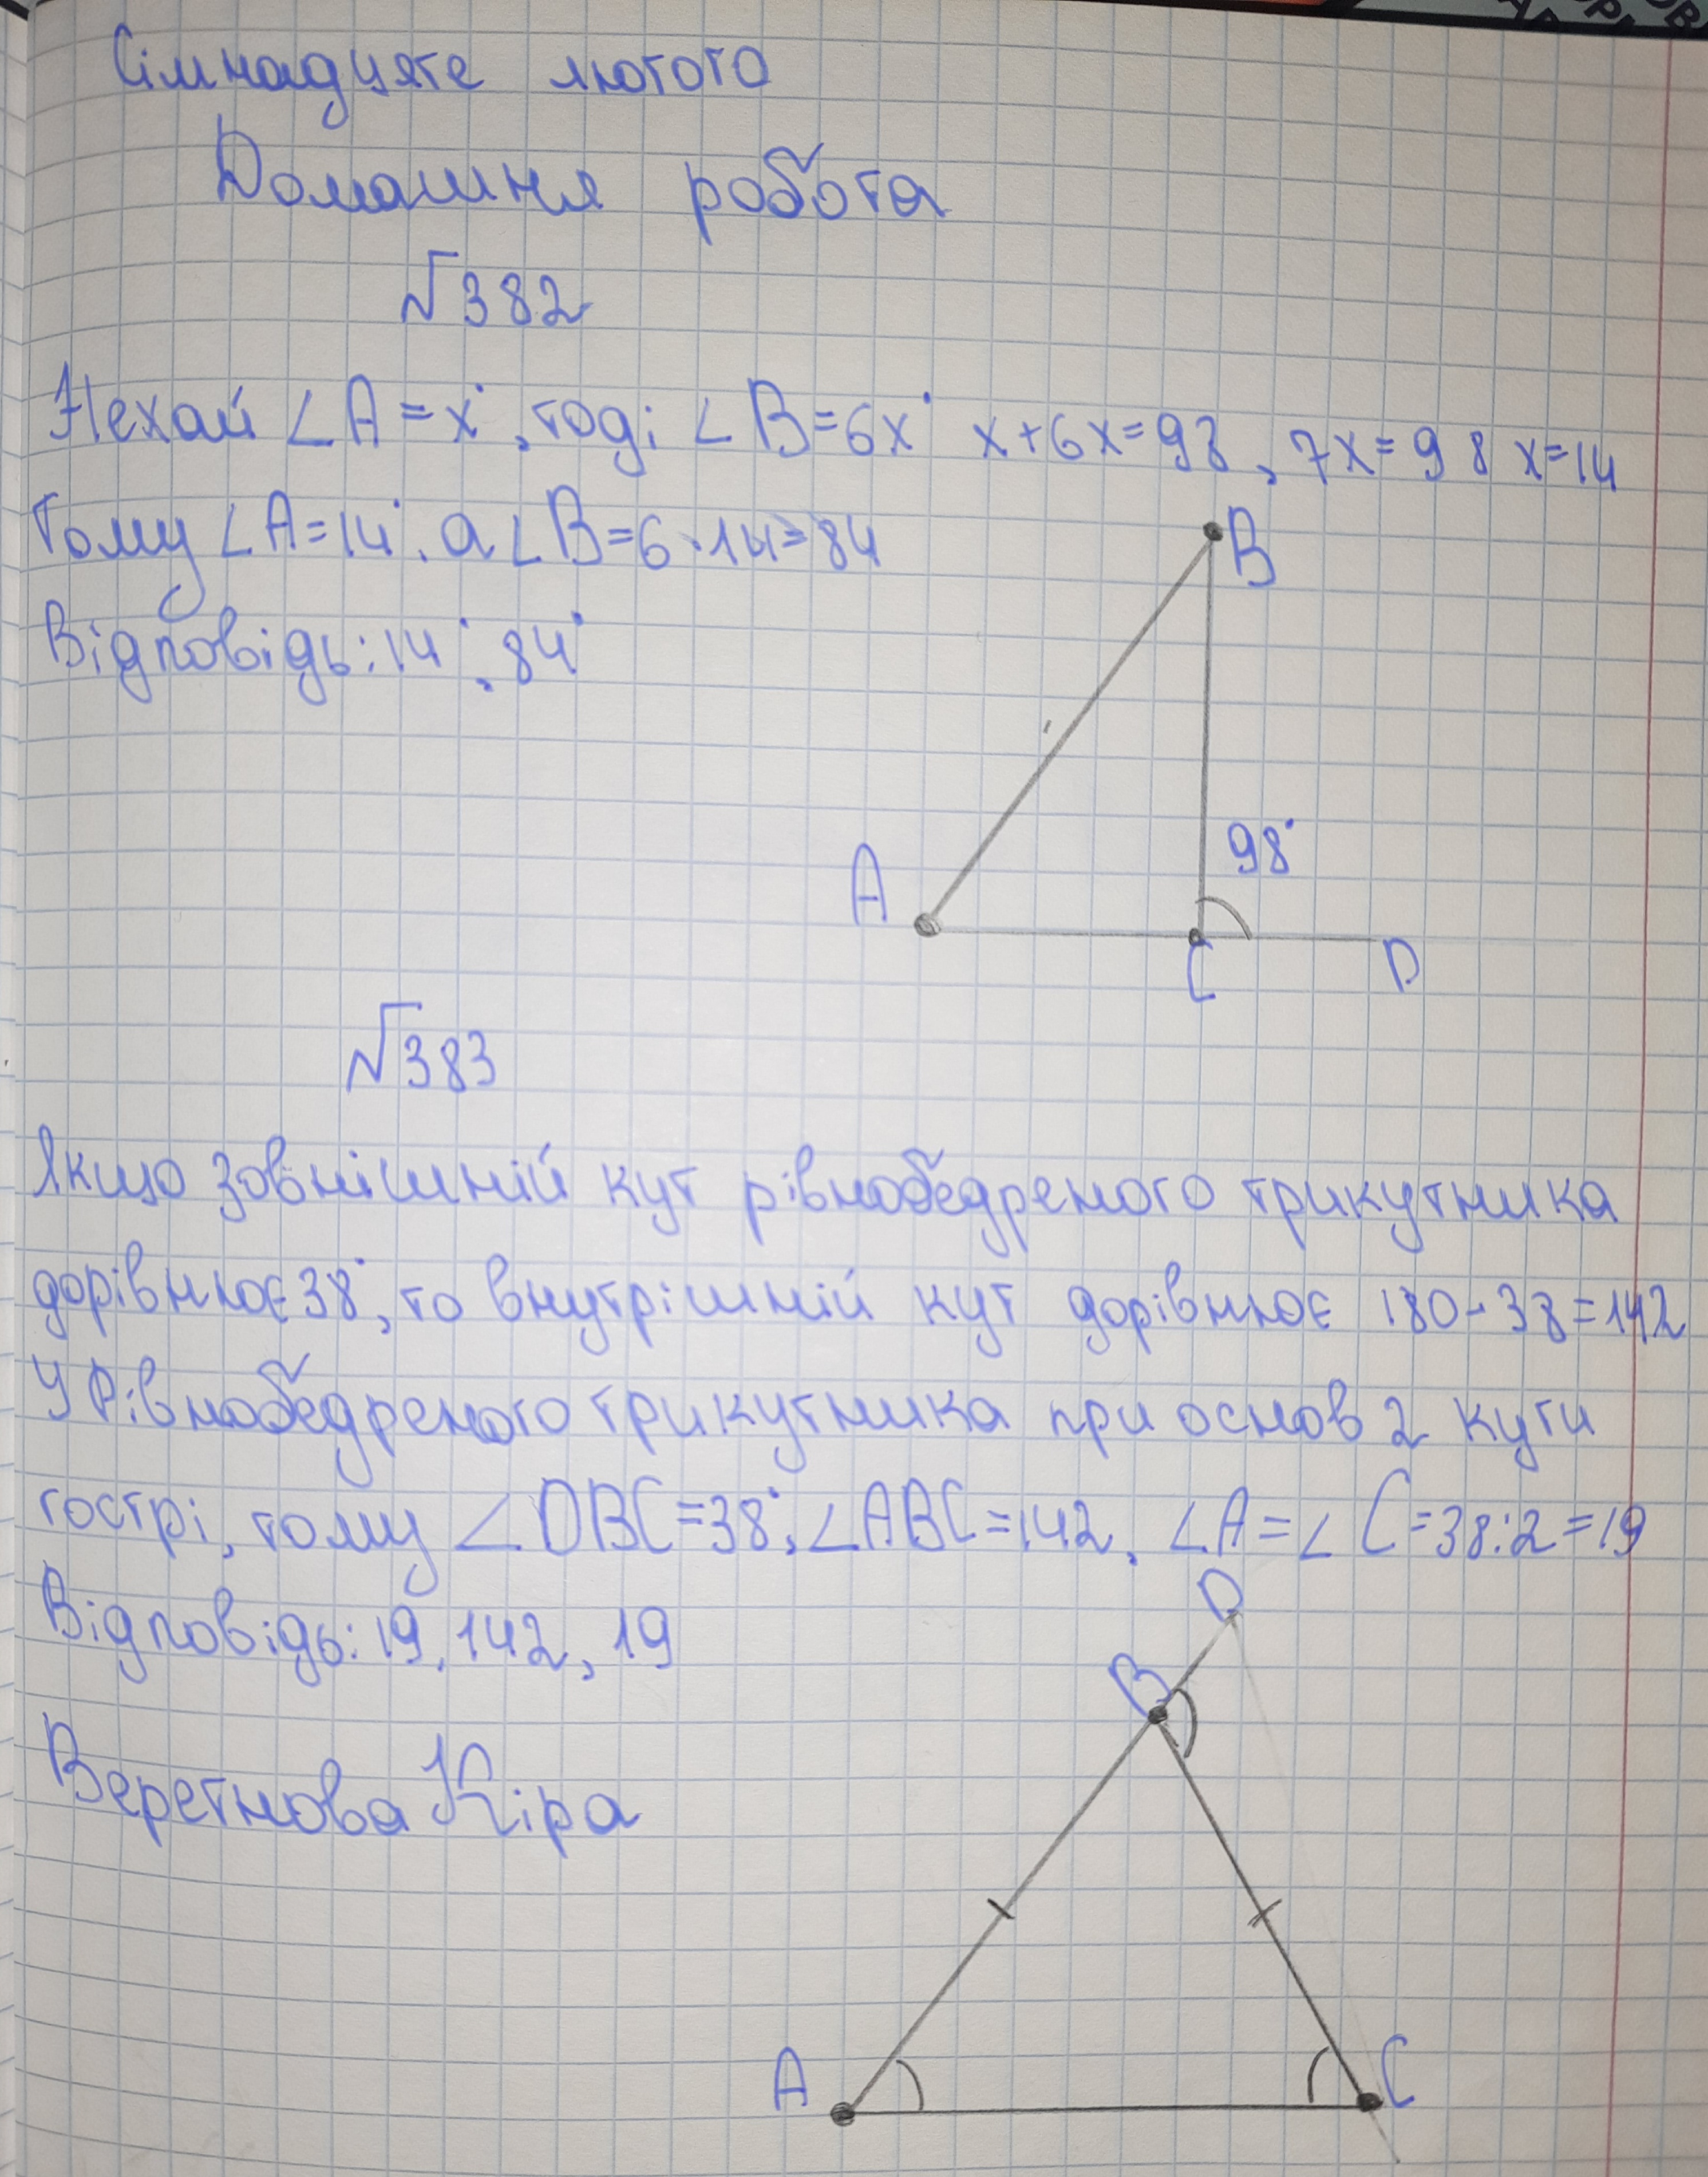 Сімнадцяте лютого
Домашня робота
√382
Нехай ∠A=x°, тоді ∠B=6x° x+6x=98, 7x=98 x=14
Тому ∠A=14°, а ∠B=6·14=84
Відповідь: 14°, 84°
B
98°
A
C
D
√383
Якщо зовнішній кут рівнобедреного трикутника
дорівнює 38°, то внутрішній кут дорівнює 180-38=142
У рівнобедреного трикутника при основ 2 кути
гострі, тому ∠DBC=38°, ∠ABC=142, ∠A=∠C=38:2=19
Відповідь: 19, 142, 19
D
B
Веретнова Кіра
A
C